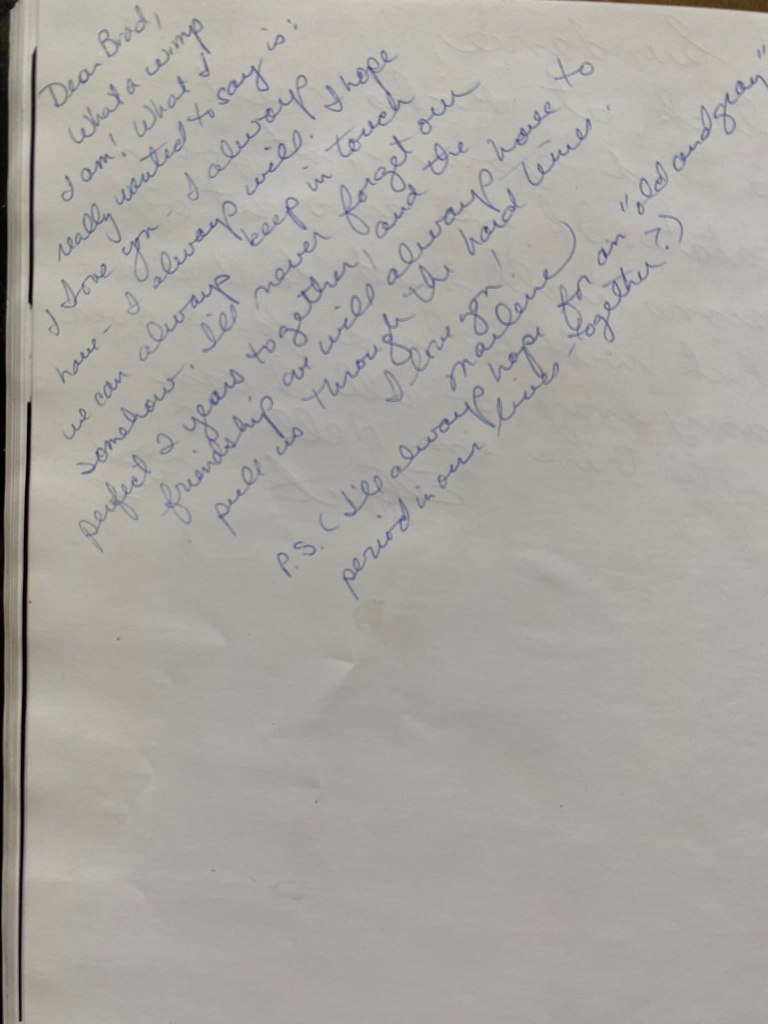 Dear Brad,
What a wimp
I am! What I
really wanted to say is:
I love you - I always
have - I always will. I hope
we can always keep in touch
somehow. I'll never forget our
perfect 2 years together, and the
friendship we will always have to
pull us through the hard times.
I love you!
Marlene
P.S. (I'll always hope for an "old and gray"
period in our lives - together?)